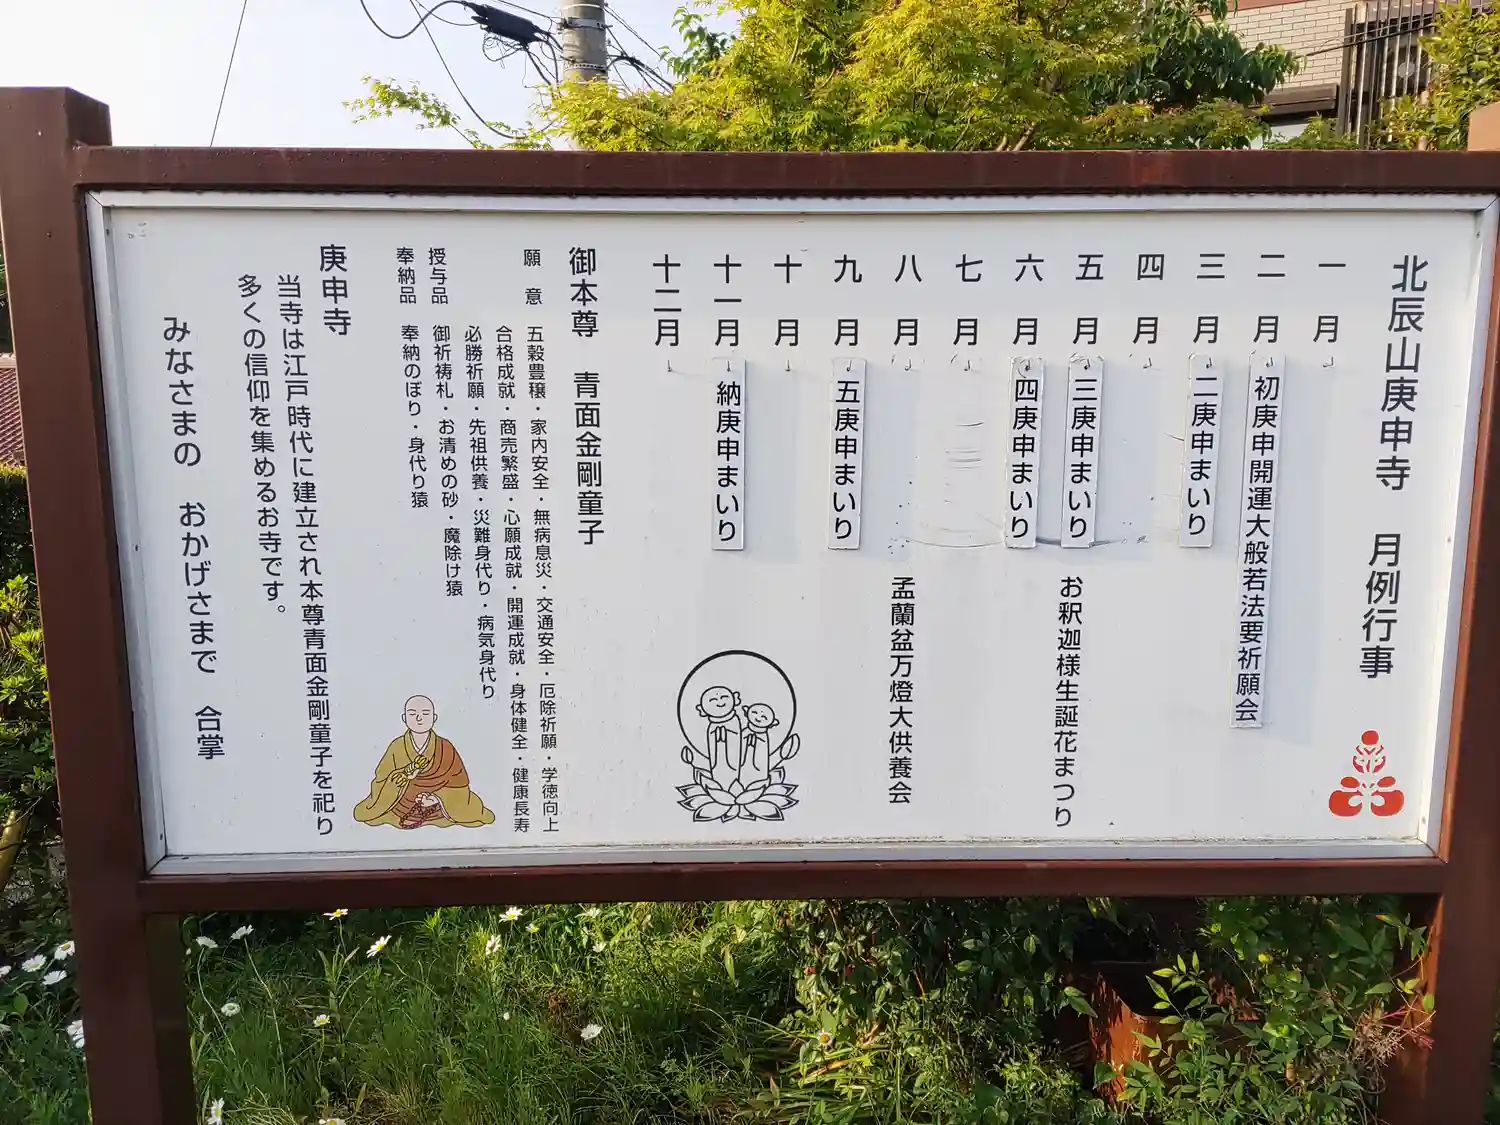 北辰山庚申寺 月例行事
一月
二月 初庚申開運大般若法要祈願会
三月 二庚申まいり
四月
五月 三庚申まいり お釈迦様生誕花まつり
六月 四庚申まいり
七月
八月 孟蘭盆万燈大供養会
九月 五庚申まいり
十月
十一月 納庚申まいり
十二月
御本尊 青面金剛童子
願意 五穀豊穣・家内安全・無病息災・交通安全・厄除祈願・学徳向上
合格成就・商売繁盛・心願成就・開運成就・身体健全・健康長寿
必勝祈願・先祖供養・災難身代り・病気身代り
授与品 御祈祷札・お清めの砂・魔除け猿
奉納品 奉納のぼり・身代り猿
庚申寺
当寺は江戸時代に建立され本尊青面金剛童子を祀り
多くの信仰を集めるお寺です。
みなさまの おかげさまで 合掌